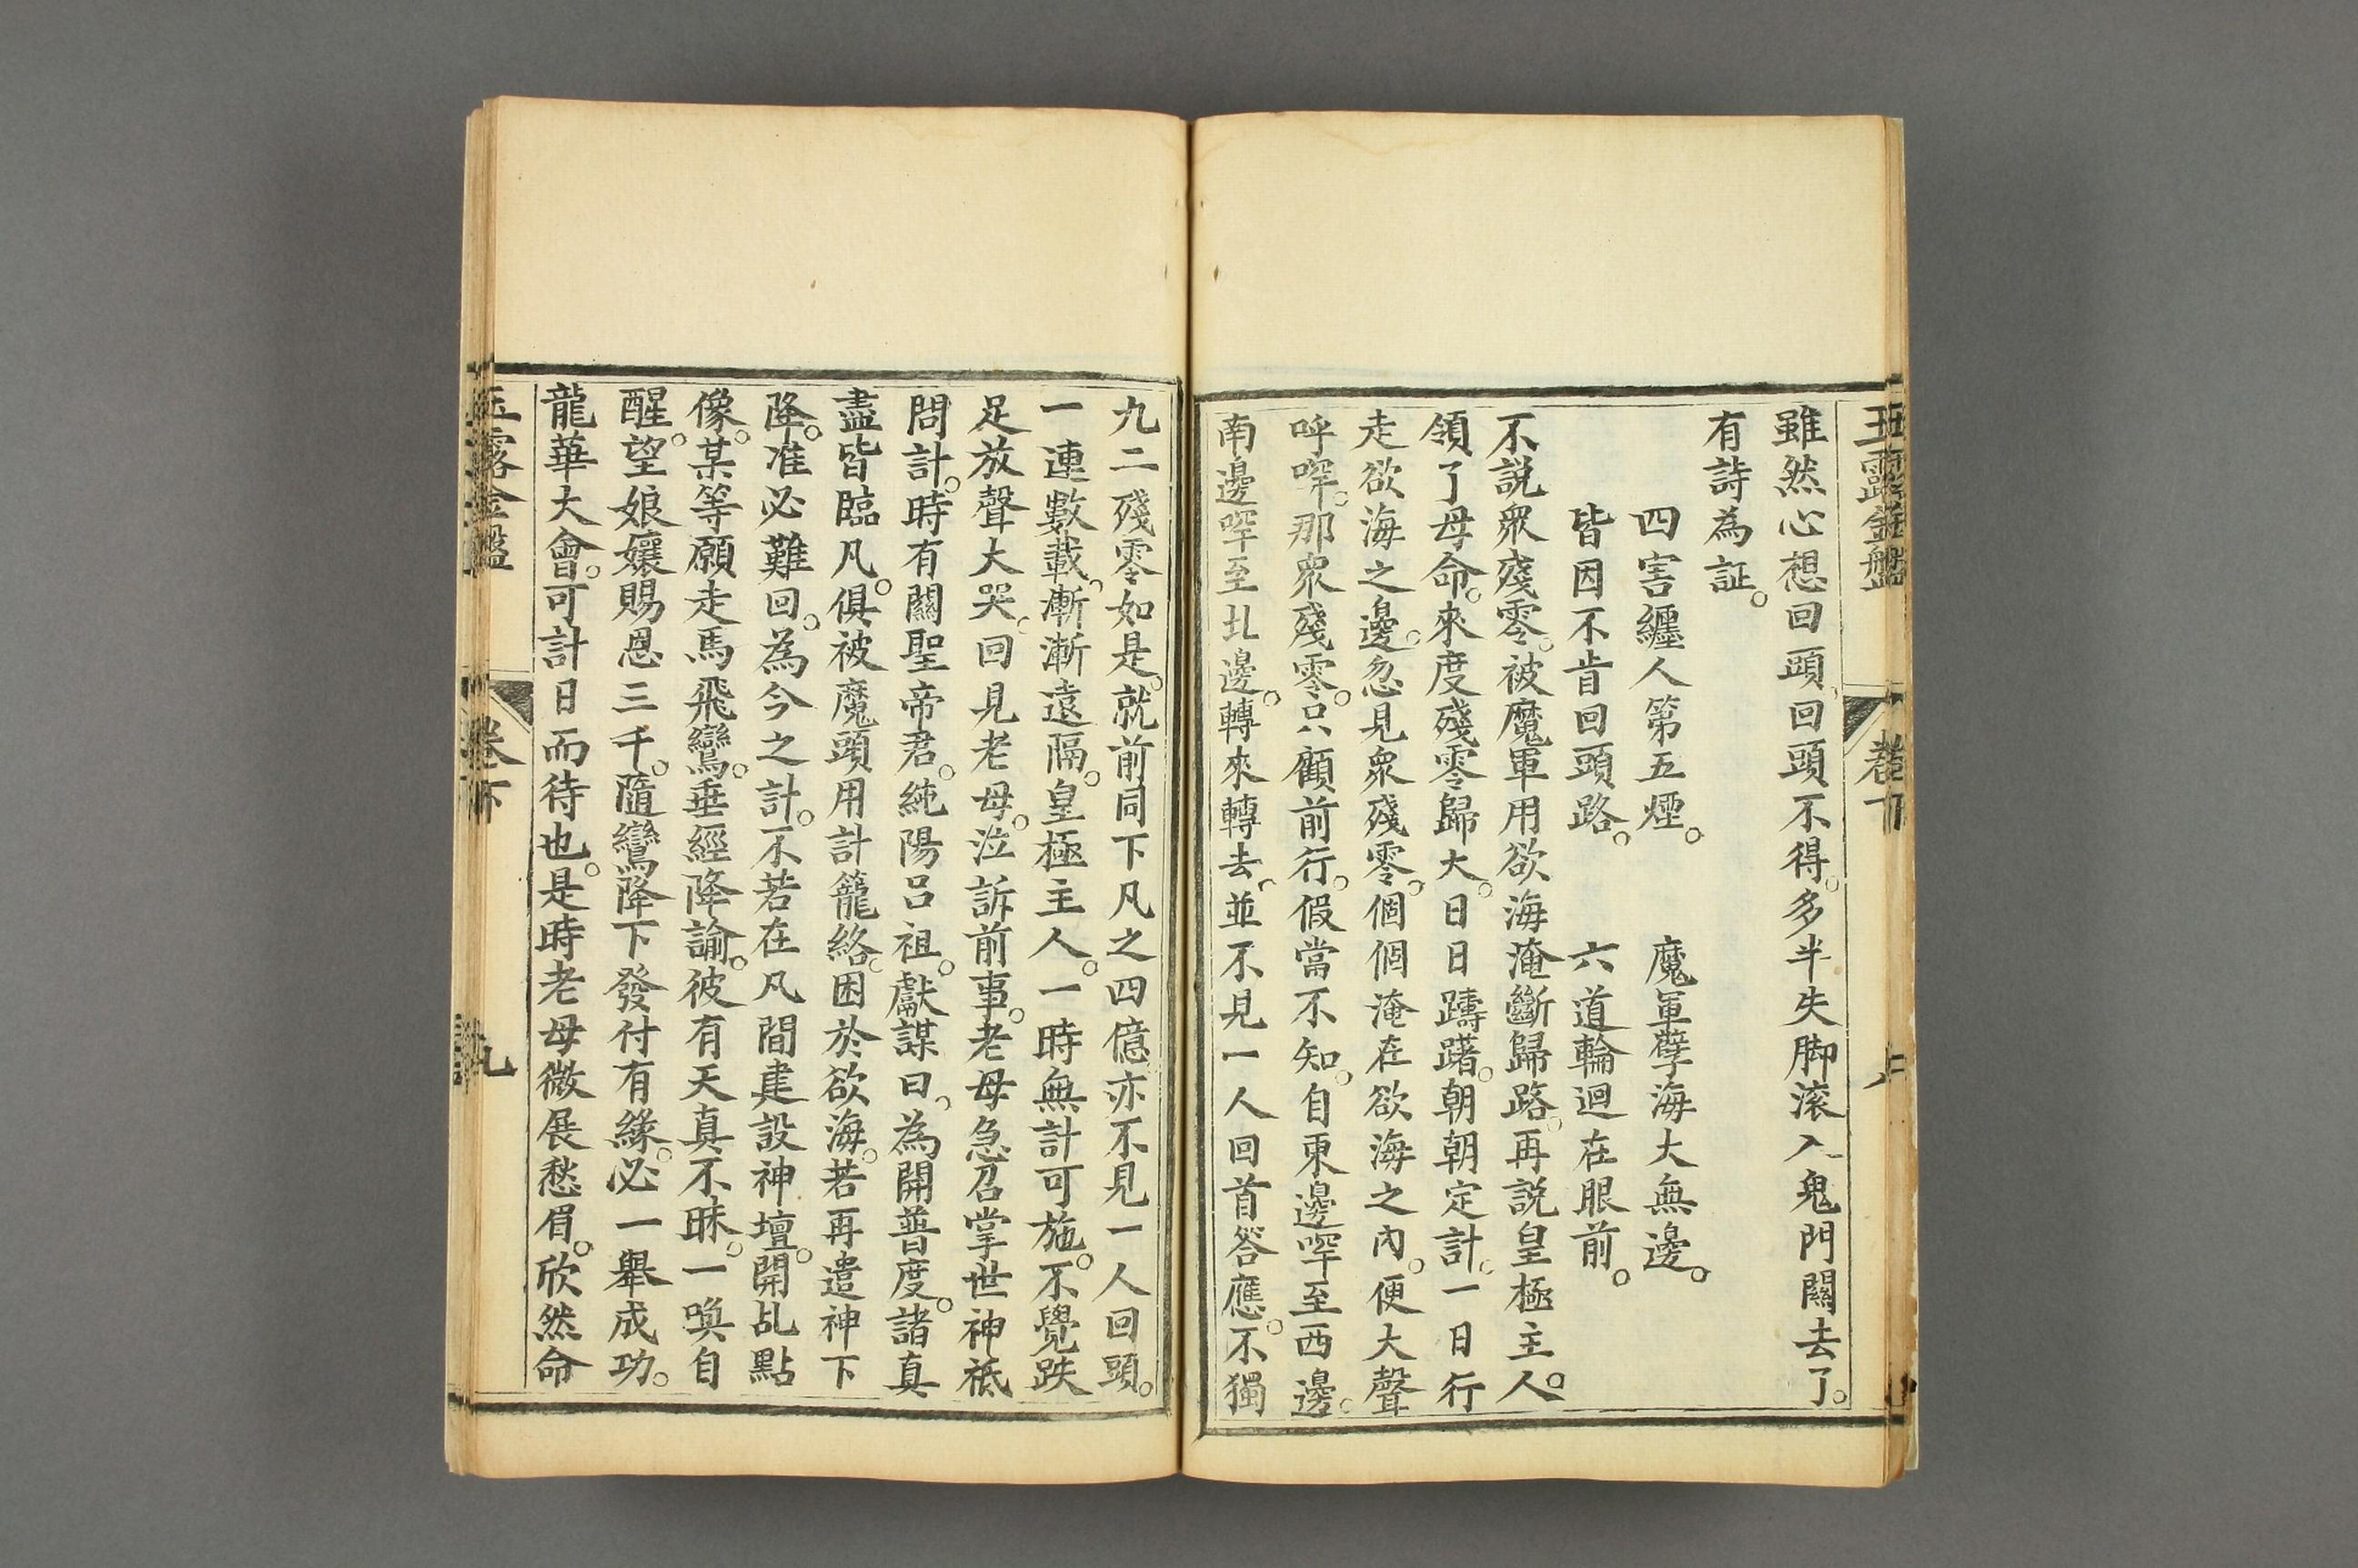 玉露金盤 卷下 八
雖然心想回頭、回頭不得。多半失脚滚入鬼門關去了。
有詩為証。
四害纏人第五煙。 魔軍孽海大無邊。
皆因不肯回頭路。 六道輪迴在眼前。
不說衆殘零。被魔軍用欲海淹斷歸路。再説皇極主人。
領了母命。來度殘零歸大。日日躊躇。朝朝定計。一日行
走欲海之邊。忽見衆殘零。個個淹在欲海之內。便大聲
呼㖔。那衆殘零。只顧前行。假當不知。自東邊㖔至西邊。
南邊㖔至北邊。轉來轉去。並不見一人回首答應。不獨
九二殘零如是。就前同下凡之四億亦不見一人回頭。
一連數載。漸漸遠隔。皇極主人。一時無計可施。不覺跌
足放聲大哭。回見老母。泣訴前事。老母急召掌世神祇
問計。時有關聖帝君。純陽呂祖。獻謀曰。為開普度。諸真
盡皆臨凡。俱被魔頭用計籠絡。困於欲海。若再遣神下
降。准必難回。為今之計。不若在凡間建設神壇。開乩點
像。某等願走馬飛鸞。垂經降諭。彼有天真不昧。一喚自
醒。望娘孃賜恩三千。隨鸞降下發付有緣。必一舉成功。
龍華大會。可計日而待也。是時老母微展愁眉。欣然命
玉露金盤 卷下 九